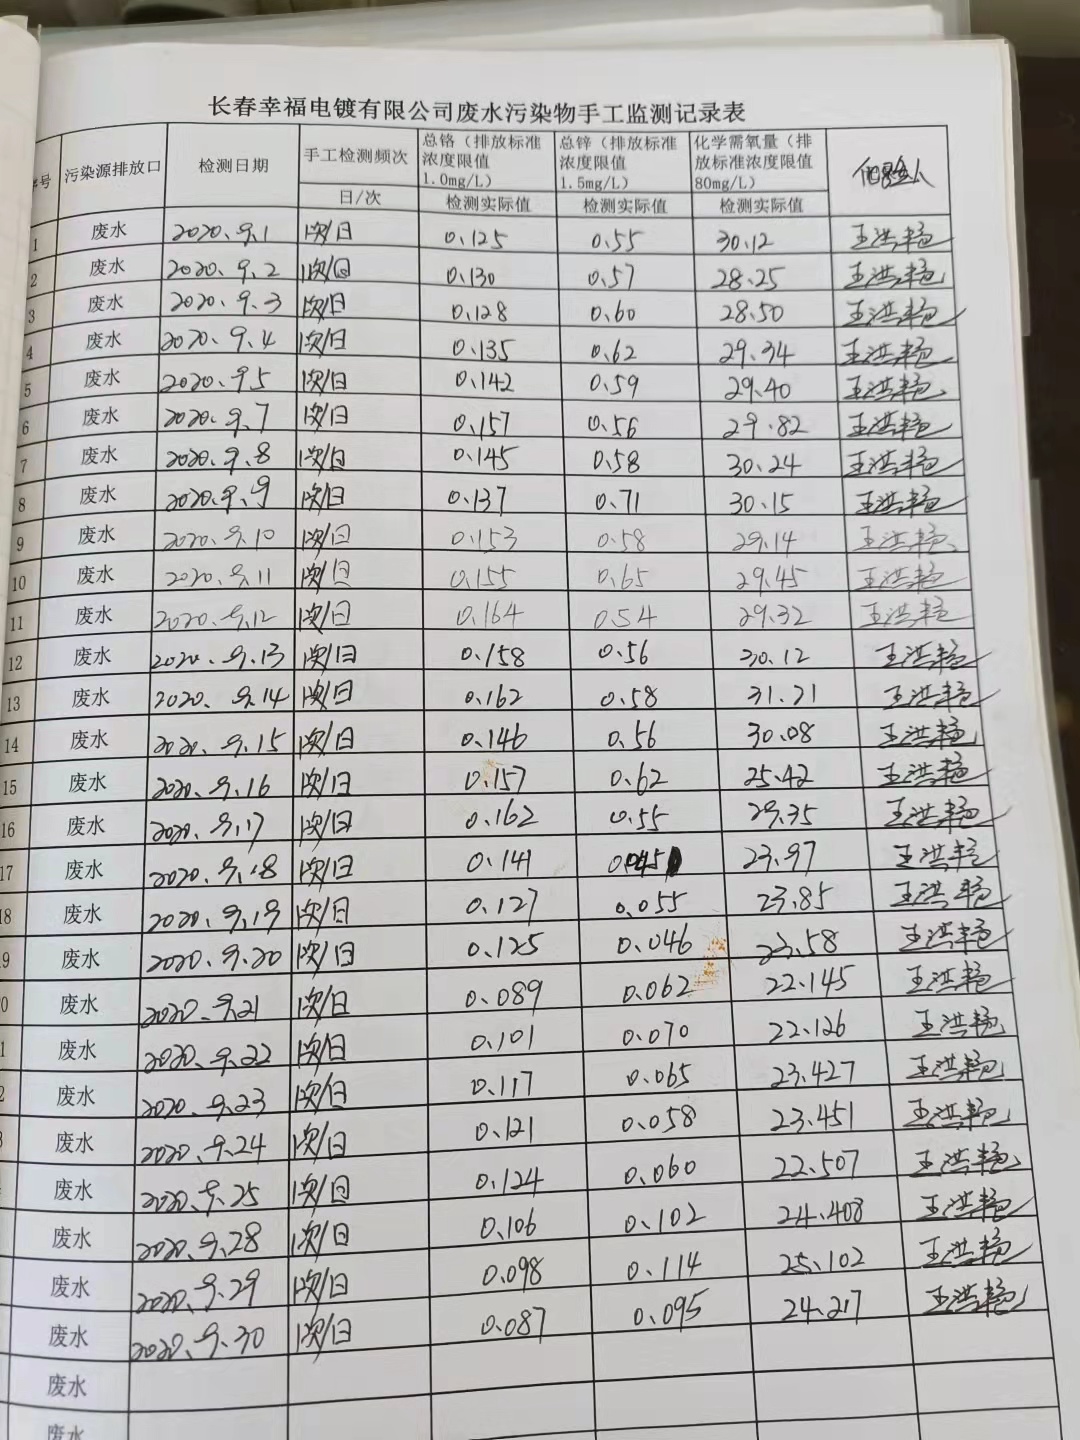 长春幸福电镀有限公司废水污染物手工监测记录表
号 污染源排放口 检测日期 手工检测频次 总铬（排放标准浓度限值1.0mg/L） 总锌（排放标准浓度限值1.5mg/L） 化学需氧量（排放标准浓度限值80mg/L）
日/次 检测实际值 检测实际值 检测实际值
1 废水 2020.9.1 1次/日 0.125 0.55 30.12 王洪艳
2 废水 2020.9.2 1次/日 0.130 0.57 28.25 王洪艳
3 废水 2020.9.3 1次/日 0.128 0.60 28.50 王洪艳
4 废水 2020.9.4 1次/日 0.135 0.62 29.34 王洪艳
5 废水 2020.9.5 1次/日 0.142 0.59 29.40 王洪艳
6 废水 2020.9.7 1次/日 0.157 0.56 29.82 王洪艳
7 废水 2020.9.8 1次/日 0.145 0.58 30.24 王洪艳
8 废水 2020.9.9 1次/日 0.137 0.71 30.15 王洪艳
9 废水 2020.9.10 1次/日 0.153 0.58 29.14 王洪艳
10 废水 2020.9.11 1次/日 0.155 0.65 29.45 王洪艳
11 废水 2020.9.12 1次/日 0.164 0.54 29.32 王洪艳
12 废水 2020.9.13 1次/日 0.158 0.56 30.12 王洪艳
13 废水 2020.9.14 1次/日 0.162 0.58 31.21 王洪艳
14 废水 2020.9.15 1次/日 0.146 0.56 30.08 王洪艳
15 废水 2020.9.16 1次/日 0.157 0.62 25.42 王洪艳
16 废水 2020.9.17 1次/日 0.162 0.55 29.35 王洪艳
17 废水 2020.9.18 1次/日 0.141 0.045 23.97 王洪艳
18 废水 2020.9.19 1次/日 0.127 0.055 23.85 王洪艳
9 废水 2020.9.20 1次/日 0.125 0.046 23.58 王洪艳
0 废水 2020.9.21 1次/日 0.089 0.062 22.145 王洪艳
1 废水 2020.9.22 1次/日 0.101 0.070 22.126 王洪艳
2 废水 2020.9.23 1次/日 0.117 0.065 23.427 王洪艳
废水 2020.9.24 1次/日 0.121 0.058 23.451 王洪艳
废水 2020.9.25 1次/日 0.124 0.060 22.507 王洪艳
废水 2020.9.28 1次/日 0.106 0.102 24.408 王洪艳
废水 2020.9.29 1次/日 0.098 0.114 25.102 王洪艳
废水 2020.9.30 1次/日 0.087 0.095 24.217 王洪艳
废水
废水